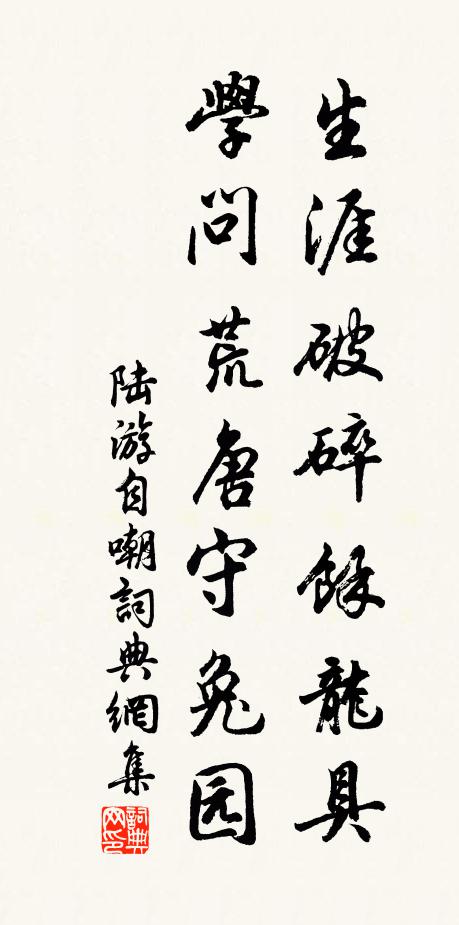 生涯破碎餘龍具
學問荒唐守兔园
陆游自嘲詞典網集
詞典网印